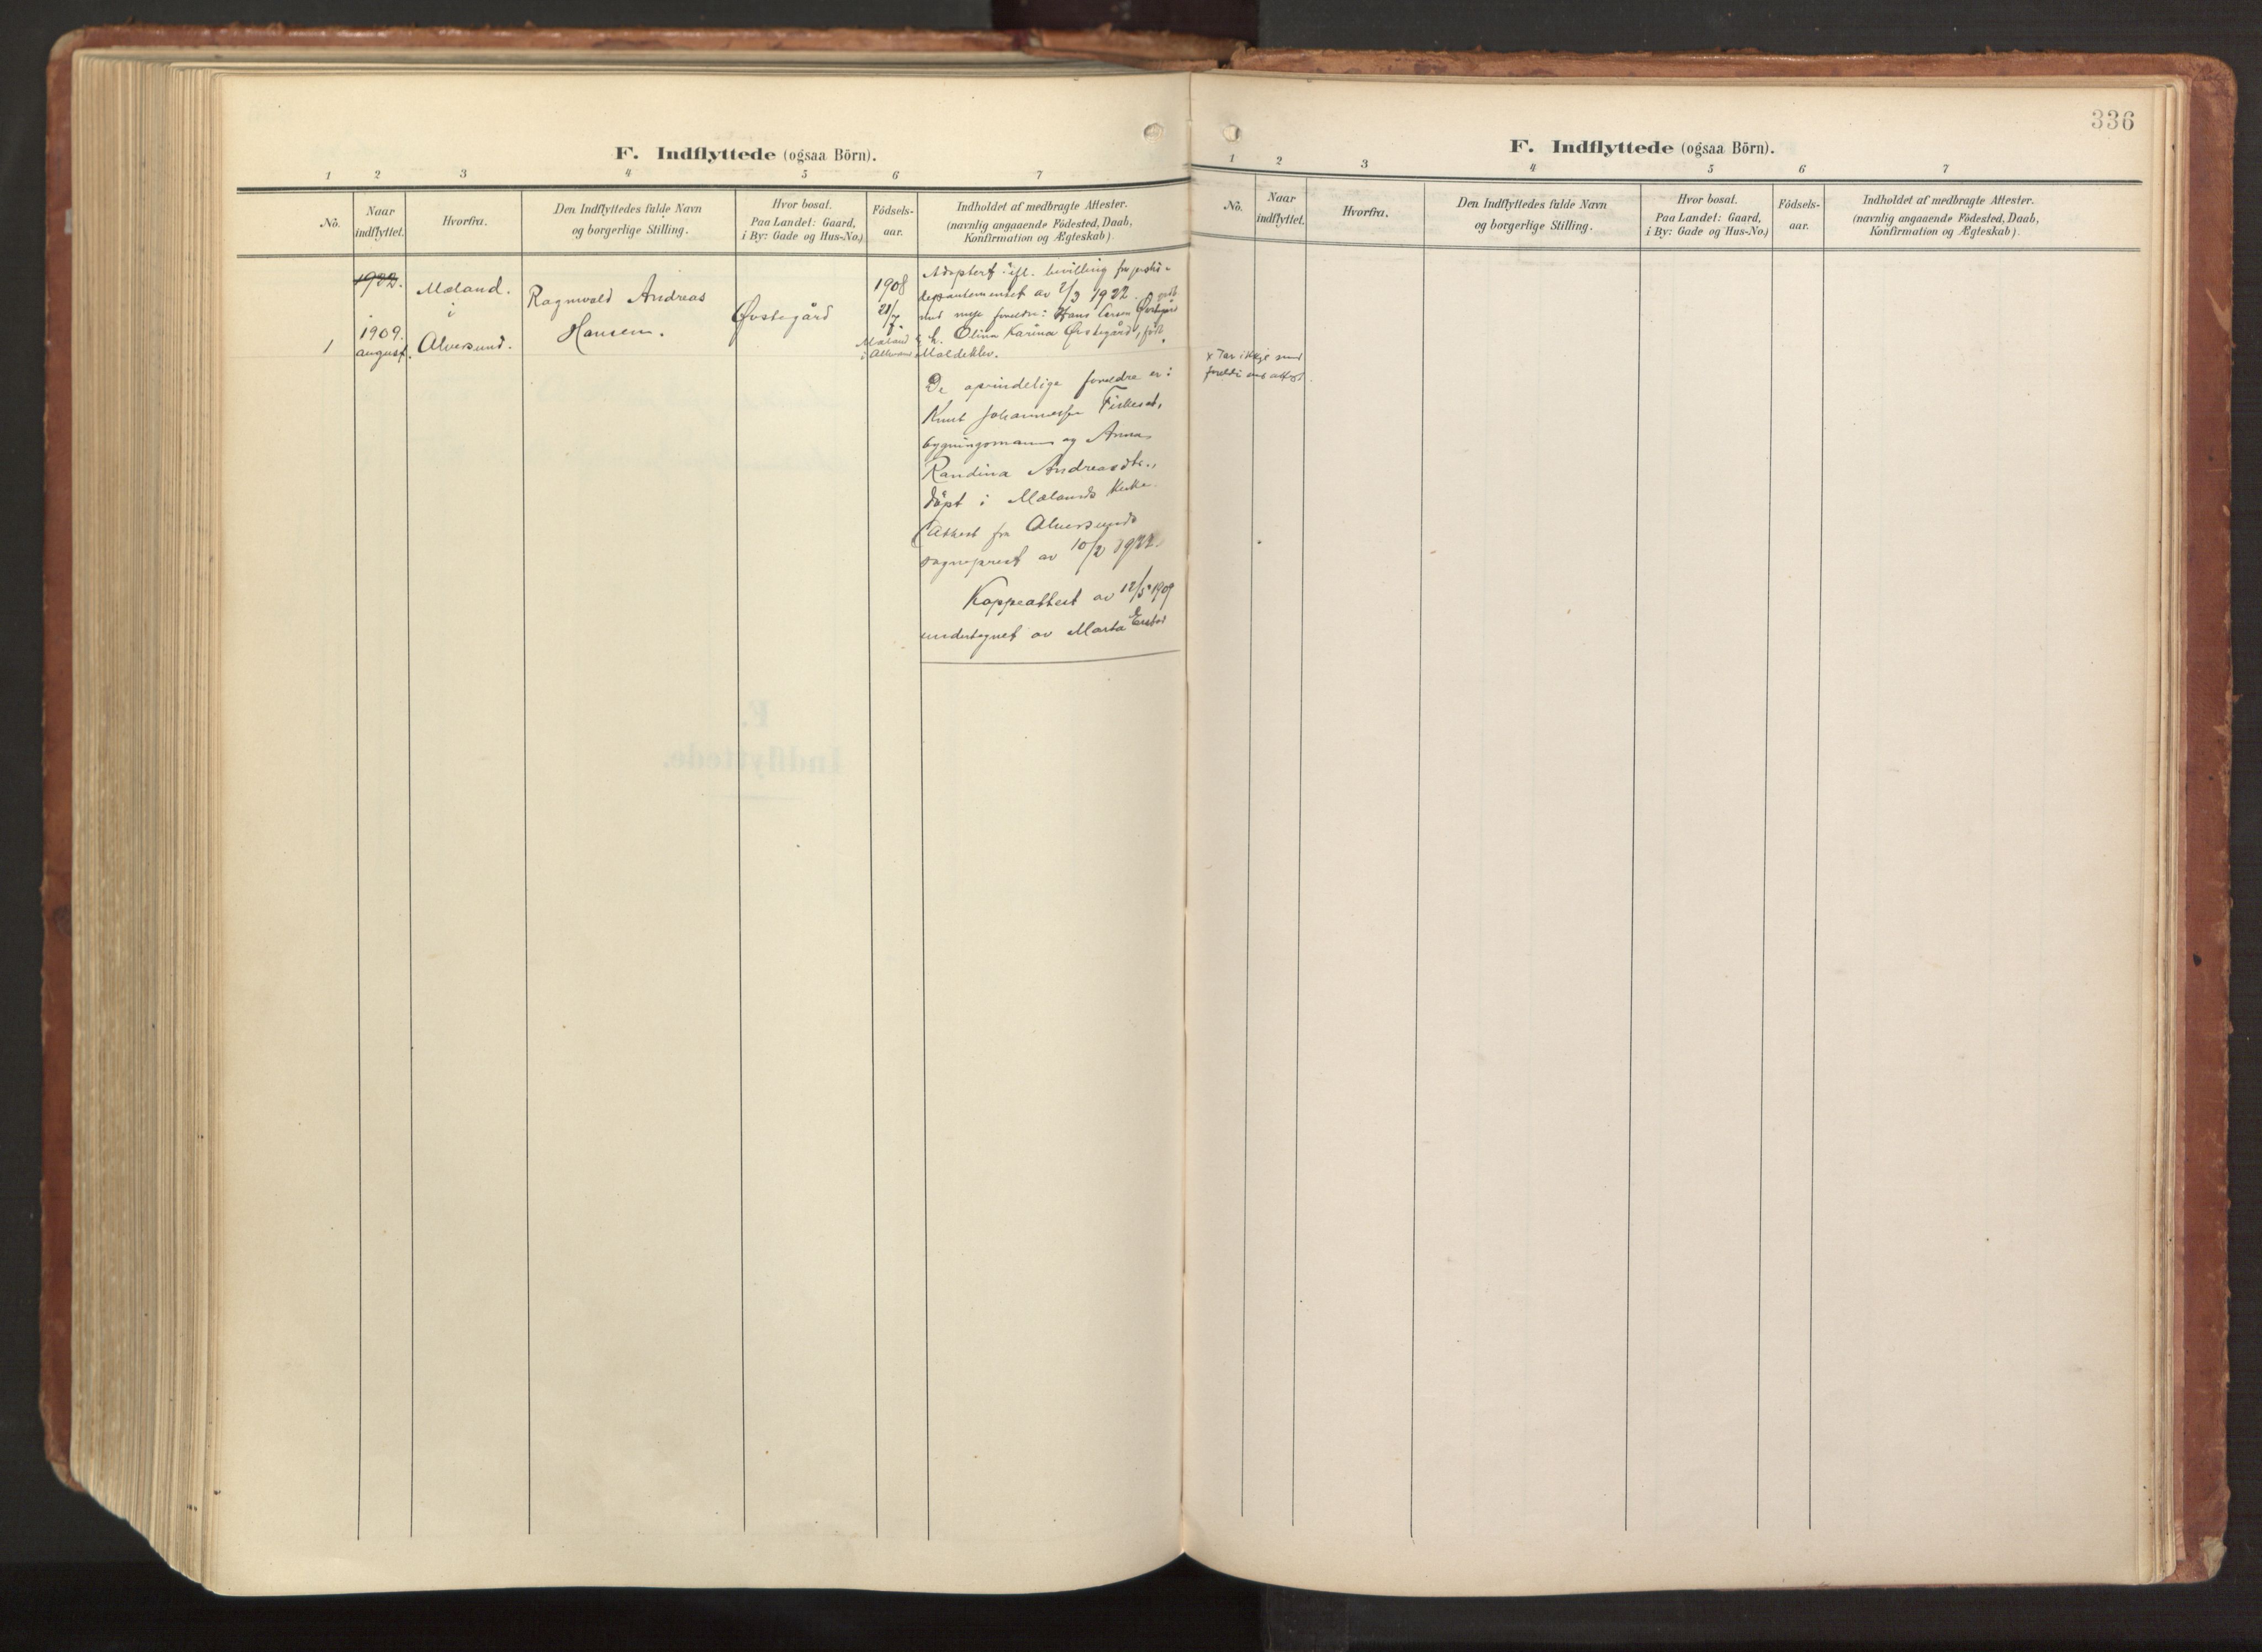 F. Indflyttede (ogsaa Börn).
1 2 3 4 5 6 7
No.
Naar
indflyttet.
Hvorfra.
Den Indflyttedes fulde Navn
og borgerlige Stilling.
Hvor bosat.
Paa Landet: Gaard,
i By: Gade og Hus-No.)
Födsels-
aar.
Indholdet af medbragte Attester.
(navnlig angaaende Födested, Daab,
Konfirmation og Ægteskab).
1
1922.
1909.
august.
Mæland.
i
Alversund.
Ragnvald Andreas
Hansen.
Øvstegård
1908
21/7.
Mæland
i
Adoptert ifl. bevilling fra justis-
departementet av 2/3 1922.
nye foreldre: Hans Larsen Øvstegård
h. Olina Karina Øvstegård, født
Moldeklev.
De oprindelige foreldre er:
Knut Johannessen
bygningsmann og Anna
Randina Andreasdtr.,
døpt i Mælands kirke.
(Attest fra Alversunds
sogneprest av 10/2 1922.
Koppeattest av 12/5 1909
undertegnet av Marta
336
F. Indflyttede (ogsaa Börn).
1 2 3 4 5 6 7
No.
Naar
indflyttet.
Hvorfra.
Den Indflyttedes fulde Navn
og borgerlige Stilling.
Hvor bosat.
Paa Landet: Gaard,
i By: Gade og Hus-No.)
Födsels-
aar.
Indholdet af medbragte Attester.
(navnlig angaaende Födested, Daab,
Konfirmation og Ægteskab).
x Tar ikkje